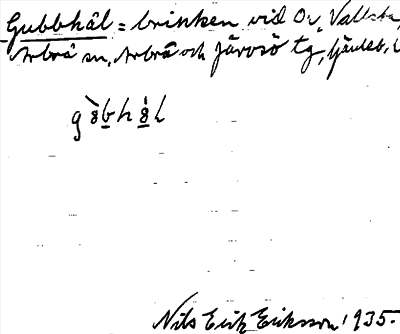 Gubbhål = brinken vid Ov. Vallsta,
Arbrå sn, Arbrå och Järvsö tg, Gävleb. l
g8bh8l
Nils Erik Eriksson 1935.